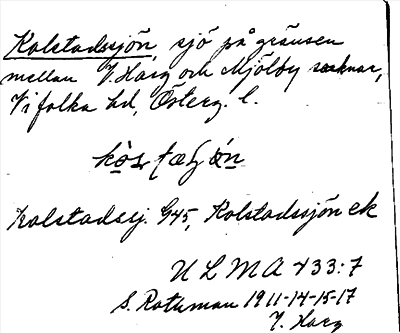 Kolstadssjön, sjö på gränsen
mellan V. Harg och Mjölby socknar,
Vifolka hd, Österg. l.
Kolstadssj. G45, Kolstadssjön ek
ULMA 433:7
S. Rothman 1911-14-15-17
V. Harg